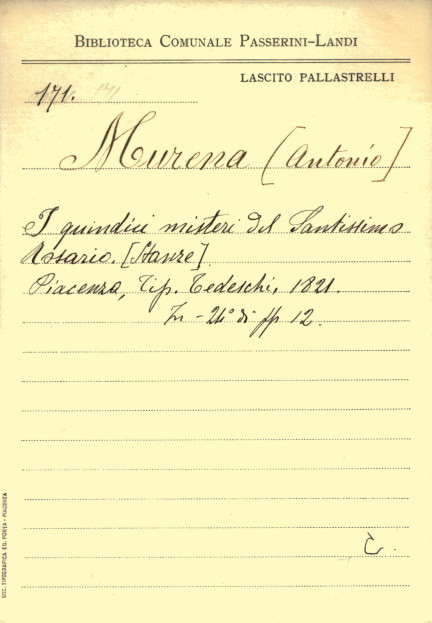 BIBLIOTECA COMUNALE PASSERINI-LANDI
LASCITO PALLASTRELLI
171. 171
Murena [Antonio]
I quindici misteri del Santissimo
Rosario. [Stanze]
Piacenza, Tip. Tedeschi, 1821.
In-24° di pp 12.
C.
SOC. TIPOGRAFICA ED. PORTA - PIACENZA